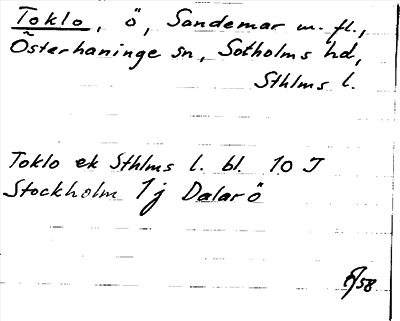 Toklo, ö, Sandemar m. fl.,
Österhaninge sn, Sotholms hd,
Sthlms l.
Toklo ek Sthlms l. bl. 10 J
Stockholm 1j Dalarö
/58